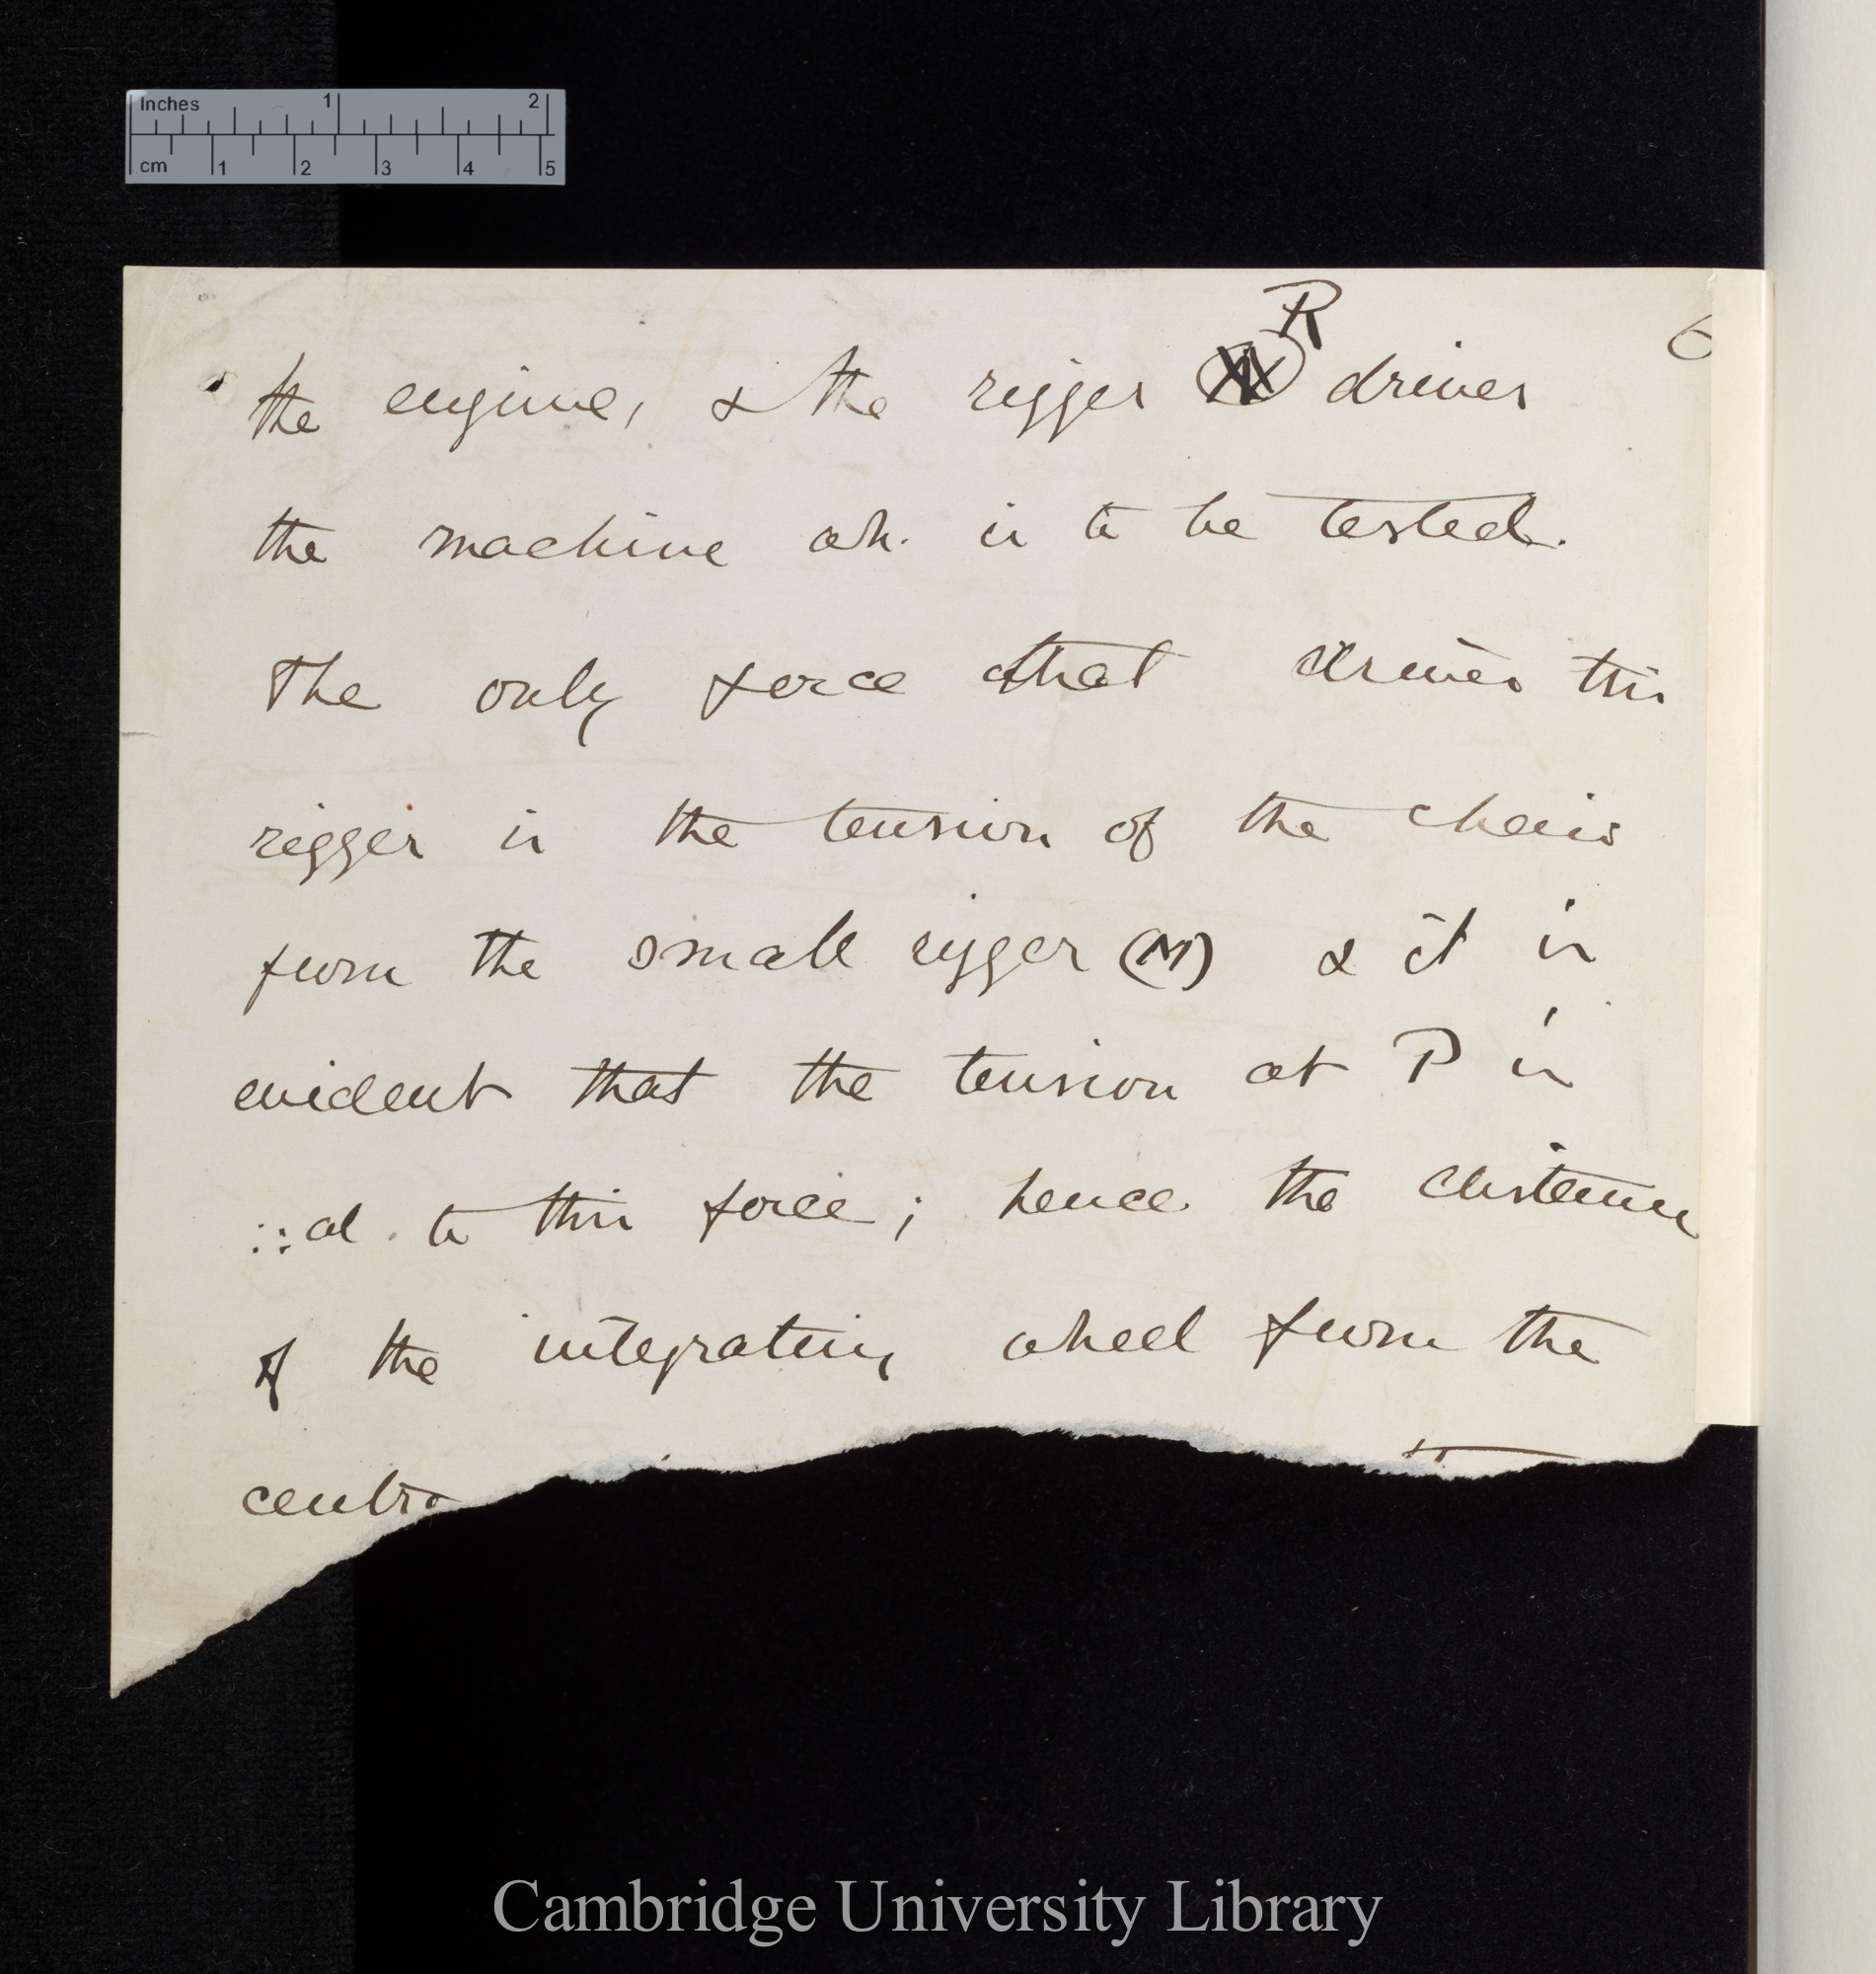 Inches 1 2
cm 1 2 3 4 5
R
6
the engine, & the rigger drives
the machine wh. is to be tested.
The only force that drives this
rigger is the tension of the chain
from the small rigger (M) & it is
evident that the tension at P is
::al to this force; hence the distance
of the integrating wheel from the
centre
Cambridge University Library